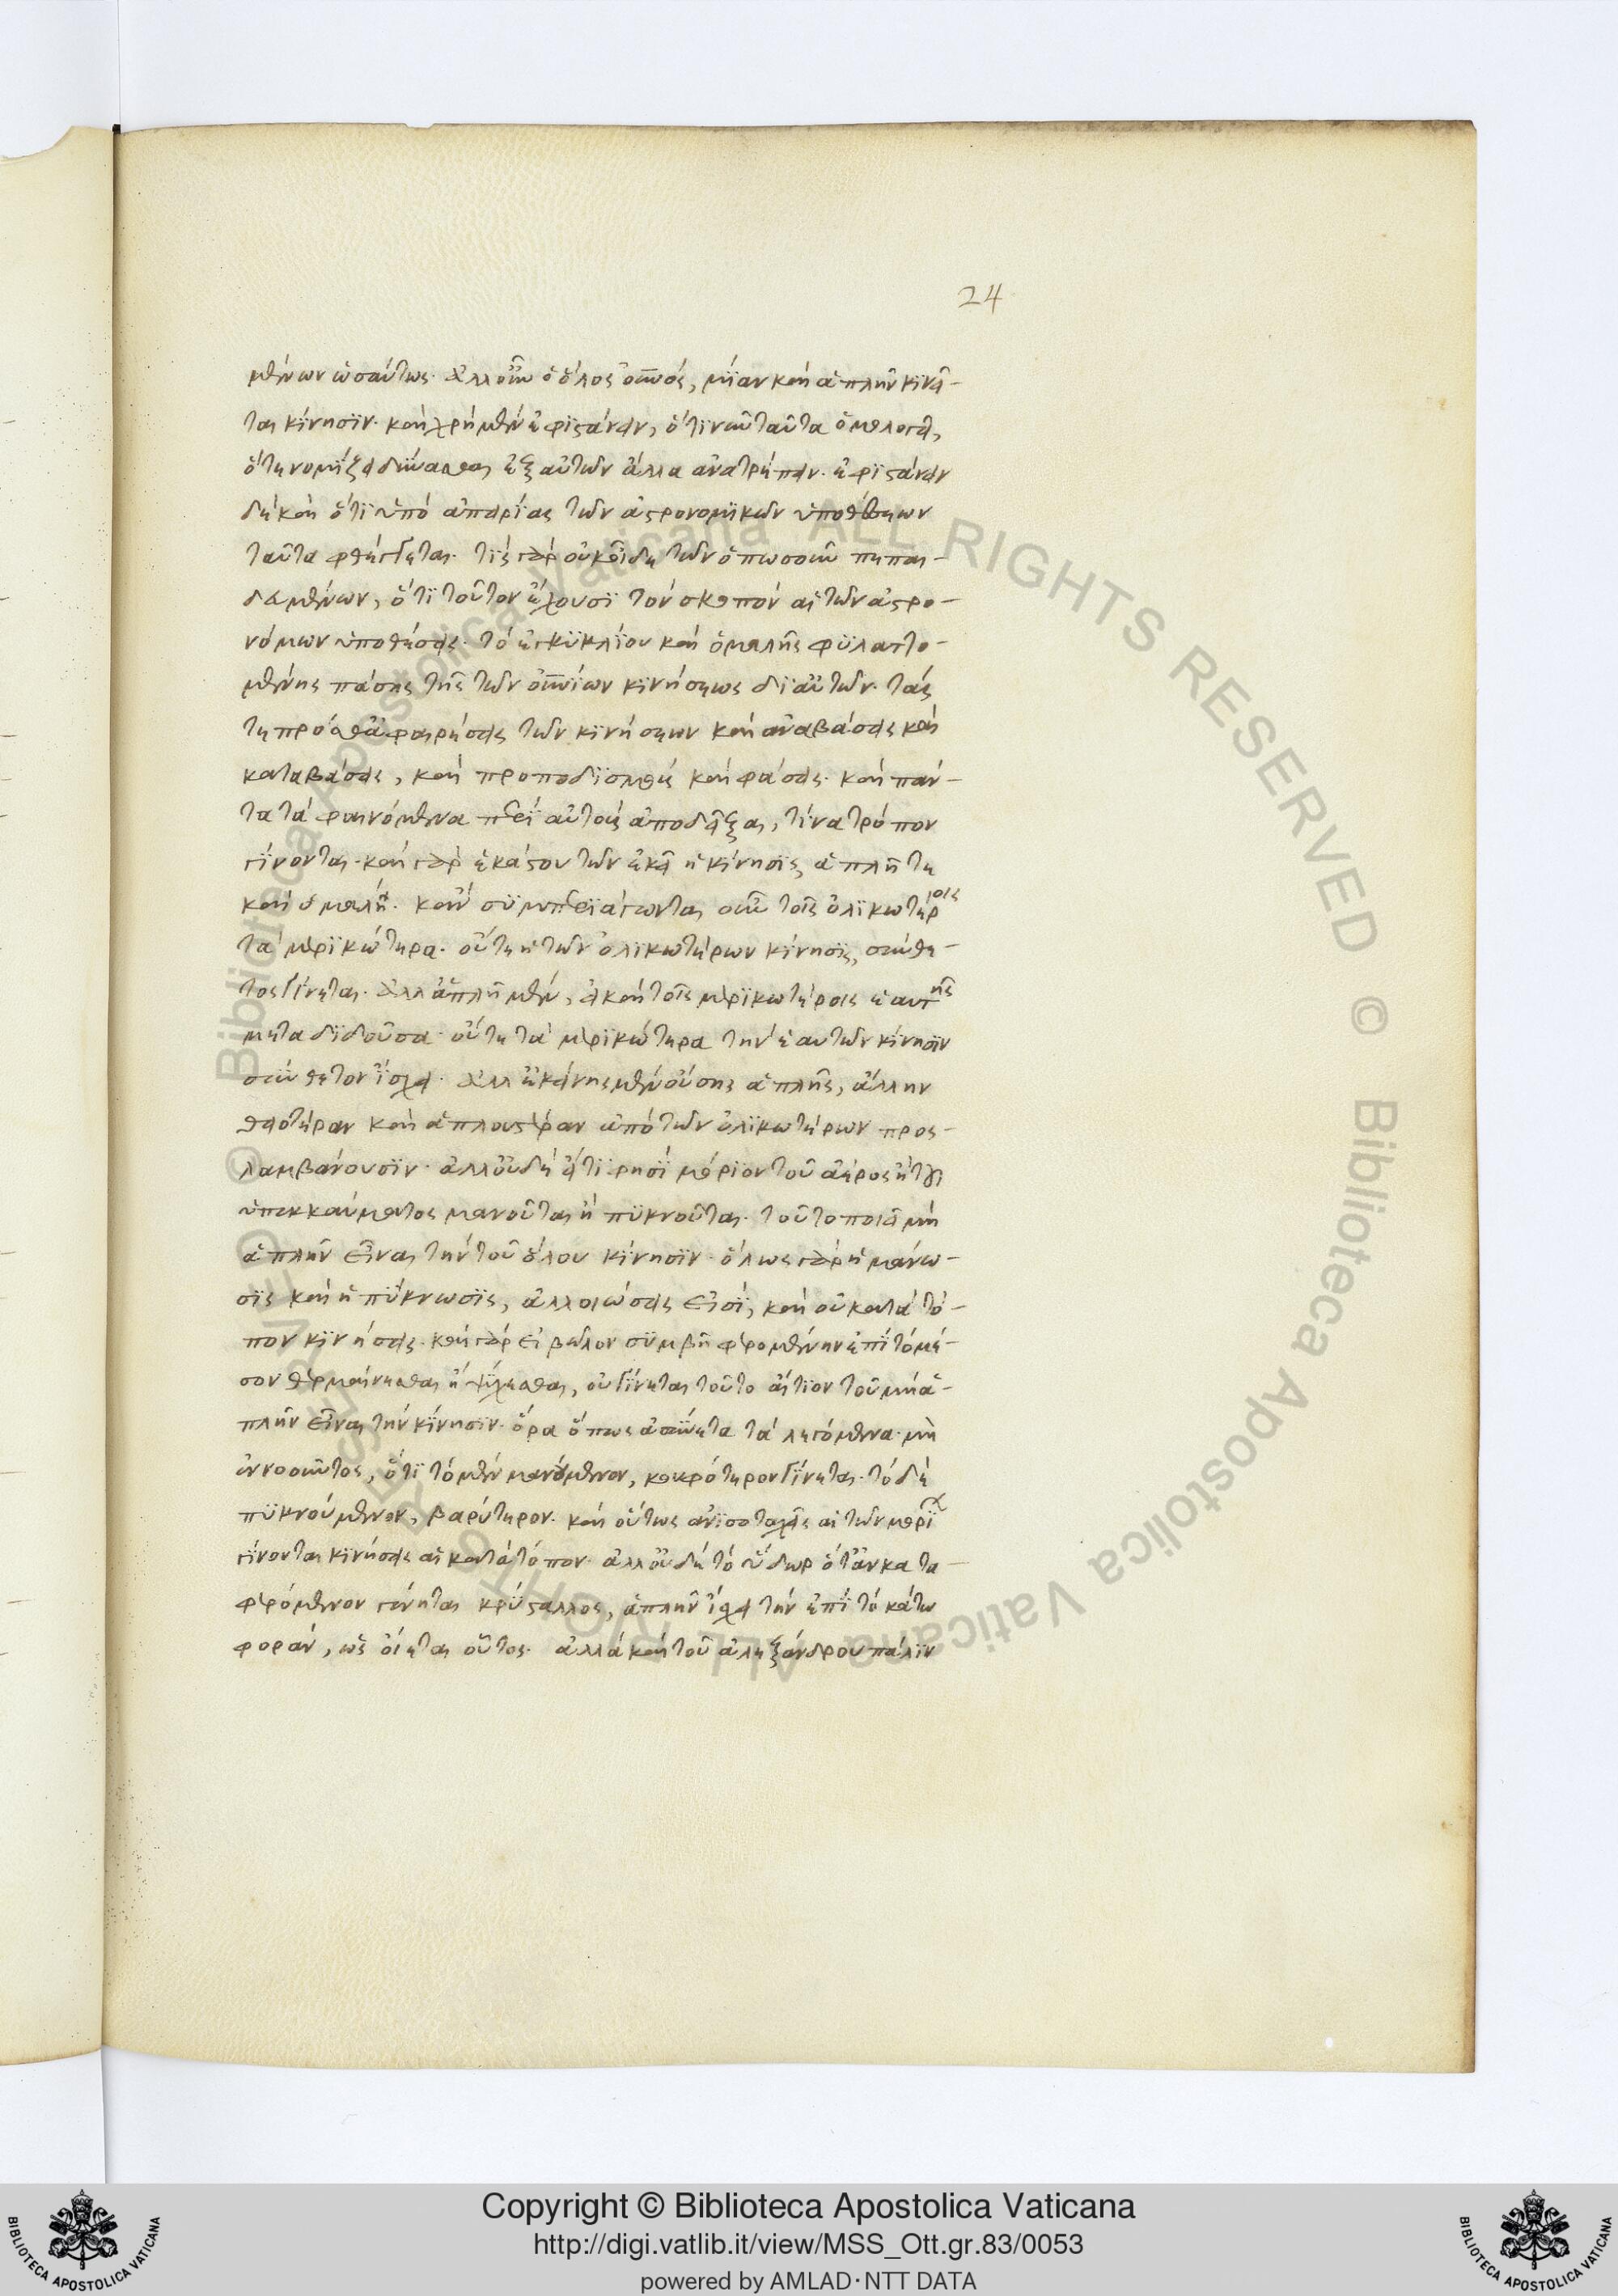 24
μένων ὡσαύτως. ἀλλ' οὖν ὁ ὅλος οὐρανός, μίαν καὶ ἁπλῆν κινεῖ-
ται κίνησιν. καὶ χρὴ μὲν ἐφιστάνειν, ὅτι νῦν ταῦτα ὁμολογεῖ,
ὅτε νομίζει δύνασθαι ἐξ αὐτῶν ἄλλα ἀνατρέπειν. ἐφιστάνειν
δὲ καὶ ὅτι ὑπὸ ἀπειρίας τῶν ἀστρονομικῶν ὑποθέσεων
ταῦτα φθέγγεται. τίς γὰρ οὐκ οἶδε τῶν ὁπωσοῦν πεπαι-
δευμένων, ὅτι τοῦτον ἔχουσι τὸν σκοπὸν αἱ τῶν ἀστρο-
νόμων ὑποθέσεις. τὸ ἐγκυκλίου καὶ ὁμαλῆς φυλαττο-
μένης πάσης τῆς τῶν οὐρανίων κινήσεως δι' αὐτῶν. τάς
τε προσθαφαιρέσεις τῶν κινήσεων καὶ ἀναβάσεις καὶ
καταβάσεις, καὶ προποδισμοὺς καὶ φάσεις. καὶ πάν-
τα τὰ φαινόμενα περὶ αὐτοὺς ἀποδεῖξαι, τίνα τρόπον
γίνονται. καὶ γὰρ ἑκάστου τῶν ἐκεῖ ἡ κίνησις, ἁπλῆ τε
καὶ ὁμαλή. κἂν συμπεριάγωνται σὺν τοῖς ὁλικωτέροις
τὰ μερικώτερα. οὔτε ἡ τῶν ὁλικωτέρων κίνησις, σύνθε-
τος γίνεται. ἀλλ' ἁπλῆ μέν, εἰ καὶ τοῖς μερικωτέροις ἑαυτῆς
μεταδιδοῦσα. οὔτε τὰ μερικώτερα τὴν ἑαυτῶν κίνησιν
σύνθετον ἴσχει. ἀλλ' ἐκείνης μὲν οὔσης ἁπλῆς, ἄλλην
θειοτέραν καὶ ἁπλουστέραν ἀπὸ τῶν ὁλικωτέρων προς-
λαμβάνουσιν. ἀλλ' οὐδὲ εἴ τι φησὶ μόριον τοῦ ἀέρος ἢ τοῦ
ὑπεκκαύματος μανοῦται ἢ πυκνοῦται. τοῦτο ποιεῖ μὴ
ἁπλῆν εἶναι τὴν τοῦ ὅλου κίνησιν. ὅλως γὰρ ἡ μάνω-
σις καὶ ἡ πύκνωσις, ἀλλοιώσεις εἰσί, καὶ οὐ κατὰ τό-
πον κινήσεις. καὶ γὰρ εἰ βῶλον συμβῇ φερομένην ἐπὶ τὸ μέ-
σον θερμαίνεσθαι ἢ ψύχεσθαι, οὐ γίνεται τοῦτο αἴτιον τοῦ μὴ ἁ-
πλῆν εἶναι τὴν κίνησιν. ὅρα ὅπως ἀσύνετα τὰ λεγόμενα. μὴ
ἐννοοῦντος, ὅτι τὸ μὲν μανούμενον, κουφότερον γίνεται. τὸ δὲ
πυκνούμενον, βαρύτερον. καὶ οὕτως ἀνισοταχεῖς αἱ τῶν μορί
γίνονται κινήσεις αἱ κατὰ τόπον. ἀλλ' οὐδὲ τὸ ὕδωρ ὅταν κατα-
φερόμενον γένηται κρύσταλλος, ἁπλῆν ἴσχει τὴν ἐπὶ τὸ κάτω
φοράν, ὡς οἴεται οὗτος. ἀλλὰ καὶ τοῦ ἀλεξάνδρου πάλιν
Copyright © Biblioteca Apostolica Vaticana
http://digi.vatlib.it/view/MSS_Ott.gr.83/0053
powered by AMLAD·NTT DATA
BIBLIOTECA APOSTOLICA VATICANA
BIBLIOTECA APOSTOLICA VATICANA
© Biblioteca Apostolica Vaticana ALL RIGHTS RESERVED © Biblioteca Apostolica Vaticana ALL RIGHTS RESERVED